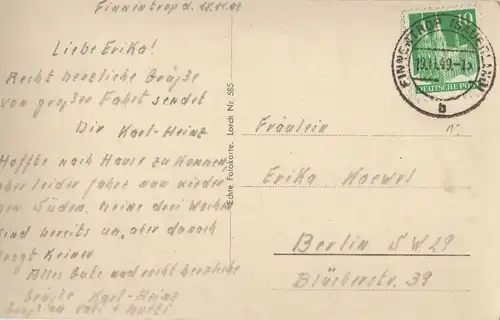 Finnentrop d. 18.11.49
Liebe Erika!
Recht herzliche Grüße
von großer Fahrt sendet
Dir Karl-Heinz
Hoffte nach Hause zu kommen,
aber leider fahren nun wieder
gen Süden. meine drei Wochen
sind bereits um, aber danach
fragt keiner
Alles Gute und recht herzliche
Grüße Karl-Heinz
Gruß an Vati + Mutti
Echte Fotokarte. Lorch Nr. 585
10
DEUTSCHE POST
FINNENTROP (SAUERLAND)
19.11.49
b
Fräulein
Erika Koewel
Berlin SW 29
Blücherstr. 39